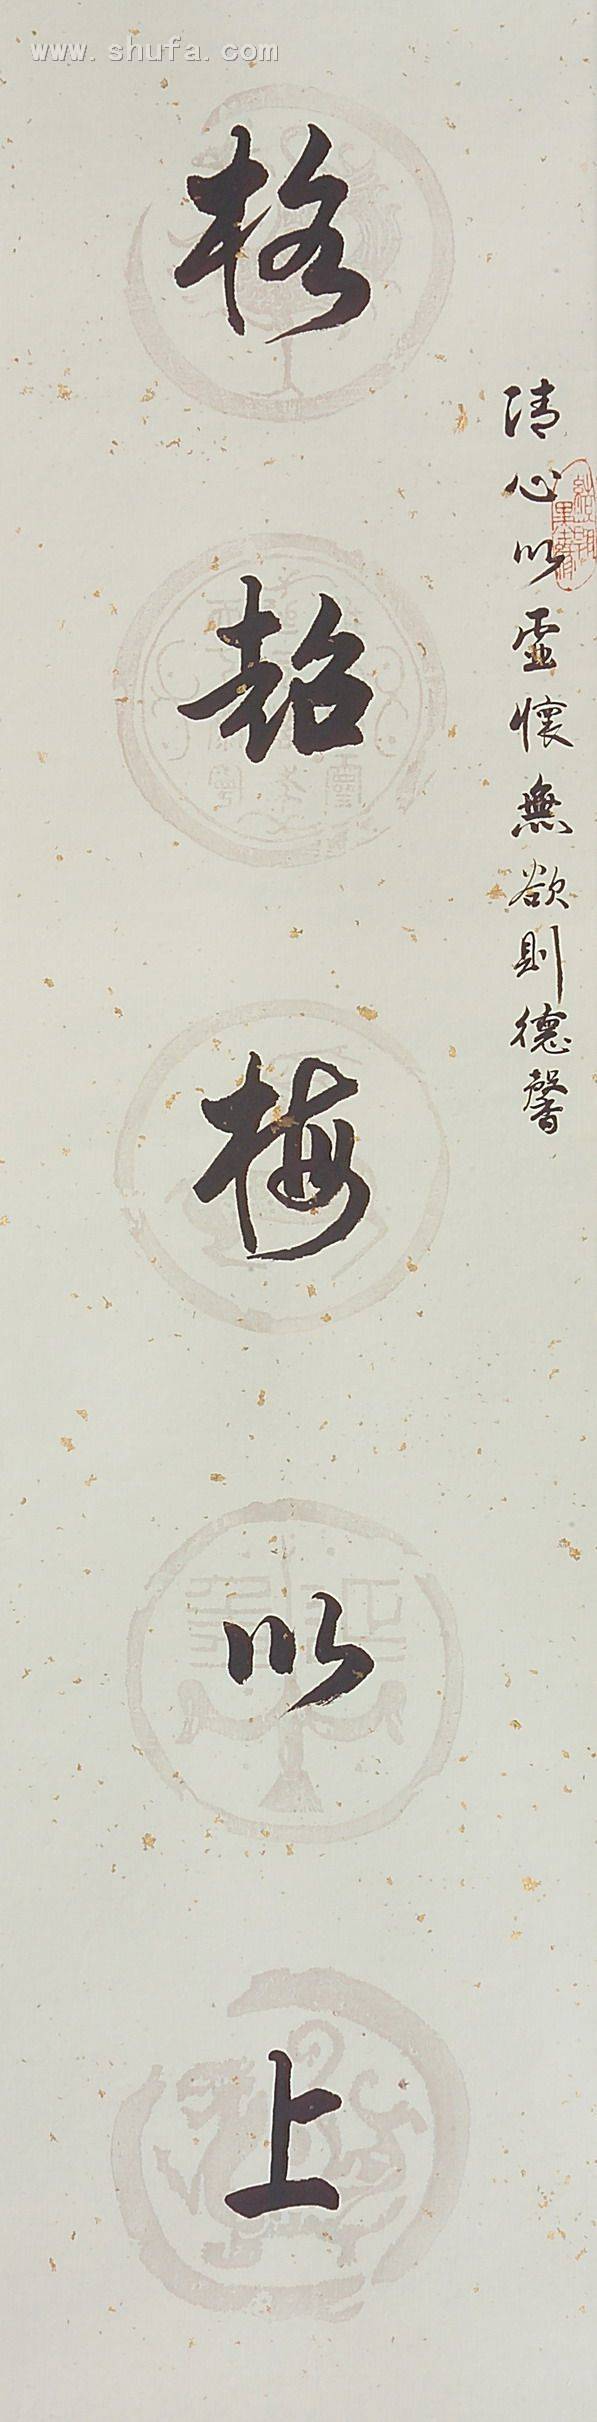 www.shufa.com
清心以虛懷無欲則德馨
格超梅以上